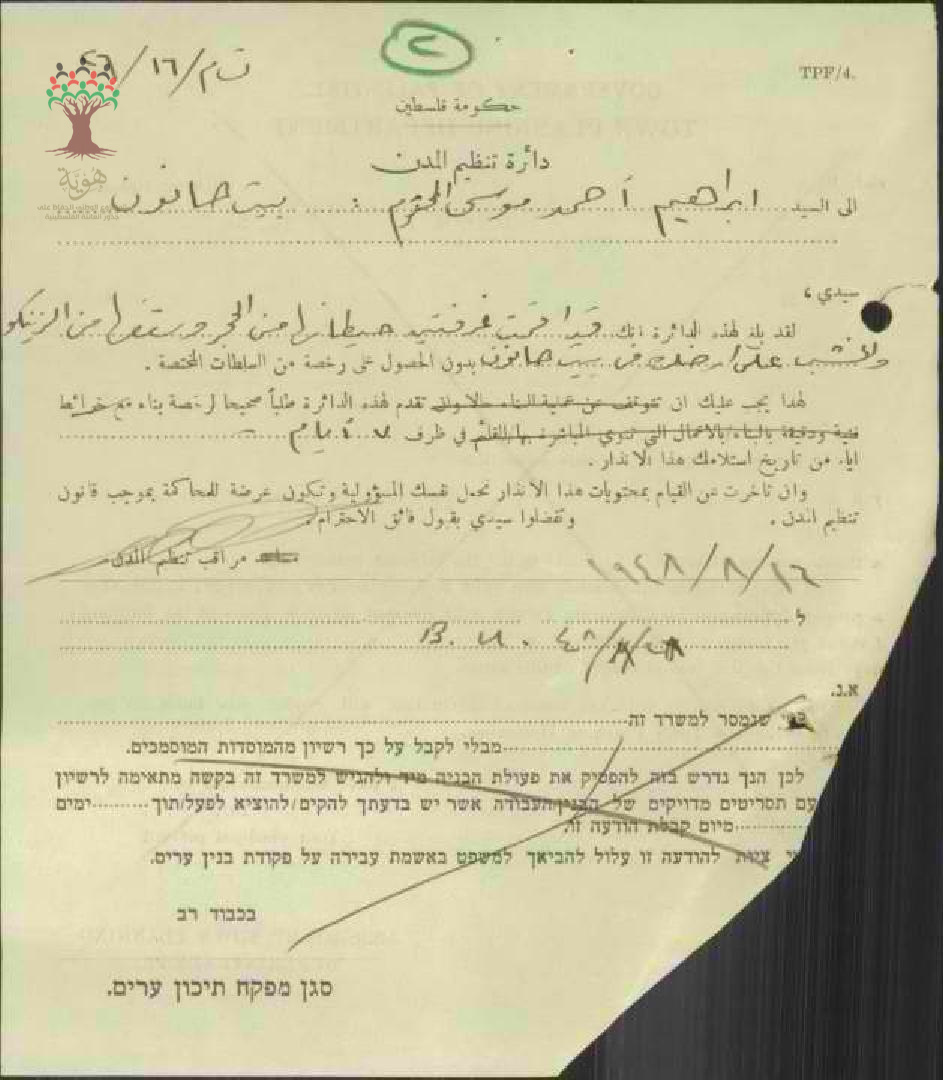 ٢
TPF/4.
ت ام/١٦/٤٦
حكومة فلسطين
دائرة تنظيم المدن
هوية
الى السيد ابراهيم أحمد موسى المحترم : بيت حانون
سيدي ،
لقد بلغ لهذه الدائرة انك قد اقمت غرفتين حيطانها من الحجر وسقفها من الزينكو
والخشب على ارضك في بيت حانون بدون الحصول على رخصة من السلطات المختصة .
لهذا يجب عليك ان تتوقف عن عملية البناء حالا وان تقدم لهذه الدائرة طلباً صحيحا لرخصة بناء مع خرائط
فنية ودقيقة بالبناء/بالاعمال التي تنوي المباشرة بها/القائم في ظرف ٧ أيام
ايام من تاريخ استلامك هذا الانذار .
وان تأخرت عن القيام بمحتويات هذا الانذار تحمل نفسك المسؤولية وتكون عرضة للمحاكمة بموجب قانون
تنظيم المدن . وتفضلوا سيدي بقبول فائق الاحترام .
مراقب تنظيم المدن
١٩٤٨/٨/١٦
ل
B. U.
א.נ.
כפי שנמסר למשרד זה
מבלי לקבל על כך רשיון מהמוסדות המוסמכים.
לכן הנך נדרש בזה להפסיק את פעולת הבניה מיד ולהגיש למשרד זה בקשה מתאימה לרשיון
עם תסריטים מדויקים של הבנין/העבודה אשר יש בדעתך להקים/להוציא לפעל/תוך ימים
מיום קבלת הודעה זו.
ציות להודעה זו עלול להביאך למשפט באשמת עבירה על פקודת בנין ערים.
בכבוד רב
סגן מפקח תיכון ערים.